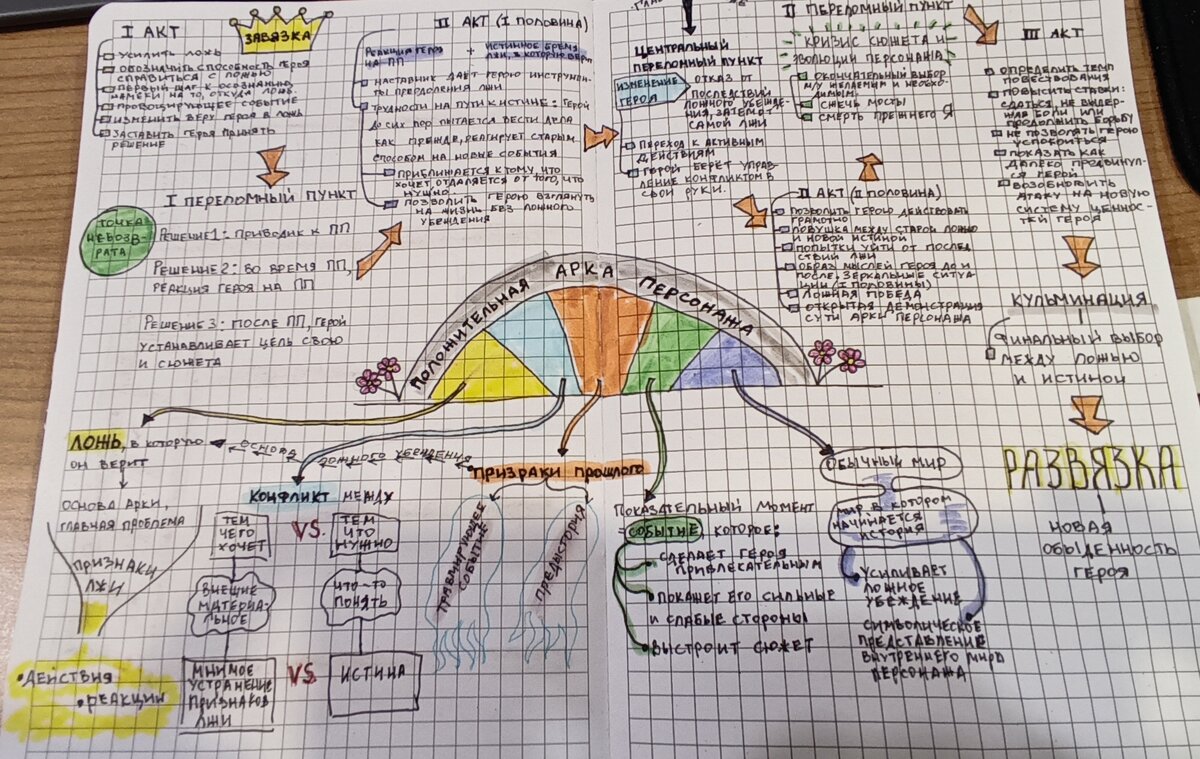 I АКТ
ЗАВЯЗКА
УСИЛИТЬ ЛОЖЬ
ОБОЗНАЧИТЬ СПОСОБНОСТЬ ГЕРОЯ
СПРАВИТЬСЯ С ЛОЖЬЮ
ПЕРВЫЙ ШАГ К ОСОЗНАНИЮ,
НАМЕКИ НА ТО, ОТКУДА ЛОЖЬ
ПРОВОЦИРУЮЩЕЕ СОБЫТИЕ
ИЗМЕНИТЬ ВЕРУ ГЕРОЯ В ЛОЖЬ
ЗАСТАВИТЬ ГЕРОЯ ПРИНЯТЬ
РЕШЕНИЕ
I ПЕРЕЛОМНЫЙ ПУНКТ
ТОЧКА
НЕВОЗВ-
РАТА
РЕШЕНИЕ 1: ПРИВОДИК К ПП
РЕШЕНИЕ 2: ВО ВРЕМЯ ПП,
РЕАКЦИЯ ГЕРОЯ НА ПП
РЕШЕНИЕ 3: ПОСЛЕ ПП, ГЕРОЙ
УСТАНАВЛИВАЕТ ЦЕЛЬ СВОЮ
И СЮЖЕТА
II АКТ (I ПОЛОВИНА)
РЕАКЦИЯ ГЕРОЯ
НА ПП
+ ИСТИННОЕ БРЕМЯ
ЛЖИ, В КОТОРУЮ ВЕРИТ
НАСТАВНИК ДАЁТ ГЕРОЮ ИНСТРУМЕН-
ТЫ ПРЕОДОЛЕНИЯ ЛЖИ
ТРУДНОСТИ НА ПУТИ К ИСТИНЕ: ГЕРОЙ
ДО СИХ ПОР ПЫТАЕТСЯ ВЕСТИ ДЕЛА
КАК ПРЕЖДЕ, РЕАГИРУЕТ СТАРЫМ
СПОСОБОМ НА НОВЫЕ СОБЫТИЯ
ПРИБЛИЖАЕТСЯ К ТОМУ, ЧТО
ХОЧЕТ, ОТДАЛЯЕТСЯ ОТ ТОГО, ЧТО
НУЖНО
ПОЗВОЛИТЬ ГЕРОЮ ВЗГЛЯНУТЬ
НА ЖИЗНЬ БЕЗ ЛОЖНОГО
УБЕЖДЕНИЯ
ЦЕНТРАЛЬНЫЙ
ПЕРЕЛОМНЫЙ ПУНКТ
ИЗМЕНЕНИЕ
ГЕРОЯ
ОТКАЗ ОТ
ПОСЛЕДСТВИЙ
ЛОЖНОГО УБЕЖДЕ-
НИЯ, ЗАТЕМ ОТ
САМОЙ ЛЖИ
ПЕРЕХОД К АКТИВНЫМ
ДЕЙСТВИЯМ
ГЕРОЙ БЕРЁТ УПРАВ-
ЛЕНИЕ КОНФЛИКТОМ В
СВОИ РУКИ.
II ПЕРЕЛОМНЫЙ ПУНКТ
КРИЗИС СЮЖЕТА И
ЭВОЛЮЦИИ ПЕРСОНАЖА
ОКОНЧАТЕЛЬНЫЙ ВЫБОР
М/У ЖЕЛАЕМЫМ И НЕОБХО-
ДИМЫМ
СЖЕЧЬ МОСТЫ
СМЕРТЬ ПРЕЖНЕГО Я
II АКТ (II ПОЛОВИНА)
ПОЗВОЛИТЬ ГЕРОЮ ДЕЙСТВОВАТЬ
ГРАМОТНО
ЛОВУШКА МЕЖДУ СТАРОЙ ЛОЖЬЮ
И НОВОЙ ИСТИНОЙ
ПОПЫТКИ УЙТИ ОТ ПОСЛЕД
СТВИЙ ЛЖИ
ОБРАЗ МЫСЛЕЙ ГЕРОЯ ДО И
ПОСЛЕ, ЗЕРКАЛЬНЫЕ СИТУА-
ЦИИ (I ПОЛОВИНЫ)
ЛОЖНАЯ ПОБЕДА
ОТКРЫТАЯ ДЕМОНСТРАЦИЯ
СУТИ АРКИ ПЕРСОНАЖА
III АКТ
ОПРЕДЕЛИТЬ ТЕМП
ПОВЕСТВОВАНИЯ
ПОВЫСИТЬ СТАВКИ:
СДАТЬСЯ, НЕ ВЫДЕР-
ЖАВ БОЛИ ИЛИ
ПРОДОЛЖИТЬ БОРЬБУ
НЕ ПОЗВОЛЯТЬ ГЕРОЮ
УСПОКОИТЬСЯ
ПОКАЗАТЬ КАК
ДАЛЕКО ПРОДВИНУЛ-
СЯ ГЕРОЙ
ВОЗОБНОВИТЬ
АТАКУ НА НОВУЮ
СИСТЕМУ ЦЕННОС-
ТЕЙ ГЕРОЯ
КУЛЬМИНАЦИЯ
ФИНАЛЬНЫЙ ВЫБОР
МЕЖДУ ЛОЖЬЮ
И ИСТИНОЙ
РАЗВЯЗКА
НОВАЯ
ОБЫДЕННОСТЬ
ГЕРОЯ
ПОЛОЖИТЕЛЬНАЯ АРКА ПЕРСОНАЖА
ЛОЖЬ, В КОТОРУЮ
ОН ВЕРИТ
ОСНОВА ЛОЖНОГО УБЕЖДЕНИЯ
ОСНОВА АРКИ,
ГЛАВНАЯ ПРОБЛЕМА
ПРИЗНАКИ
ЛЖИ
ДЕЙСТВИЯ
РЕАКЦИИ
КОНФЛИКТ МЕЖДУ
ТЕМ
ЧЕГО
ХОЧЕТ
VS.
ТЕМ
ЧТО
НУЖНО
ВНЕШНЕЕ
МАТЕРИА-
ЛЬНОЕ
ЧТО-ТО
ПОНЯТЬ
МНИМОЕ
УСТРАНЕНИЕ
ПРИЗНАКОВ
ЛЖИ
VS.
ИСТИНА
ПРИЗРАКИ ПРОШЛОГО
ТРАВМИРУЮЩЕЕ
СОБЫТИЕ
ПРЕДЫСТОРИЯ
ПОКАЗАТЕЛЬНЫЙ МОМЕНТ
= СОБЫТИЕ, КОТОРОЕ:
СДЕЛАЕТ ГЕРОЯ
ПРИВЛЕКАТЕЛЬНЫМ
ПОКАЖЕТ ЕГО СИЛЬНЫЕ
И СЛАБЫЕ СТОРОНЫ
ВЫСТРОИТ СЮЖЕТ
ОБЫЧНЫЙ МИР
МИР В КОТОРОМ
НАЧИНАЕТСЯ
ИСТОРИЯ
УСИЛИВАЕТ
ЛОЖНОЕ
УБЕЖДЕНИЕ
СИМВОЛИЧЕСКОЕ
ПРЕДСТАВЛЕНИЕ
ВНУТРЕННЕГО МИРА
ПЕРСОНАЖА